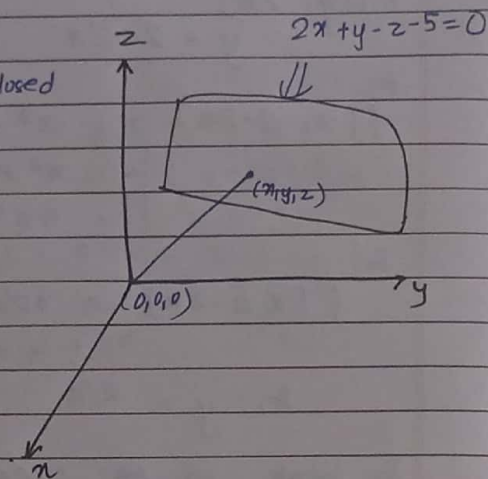 2x+y-z-5=0
z
losed
(x,y,z)
(0,0,0)
y
x